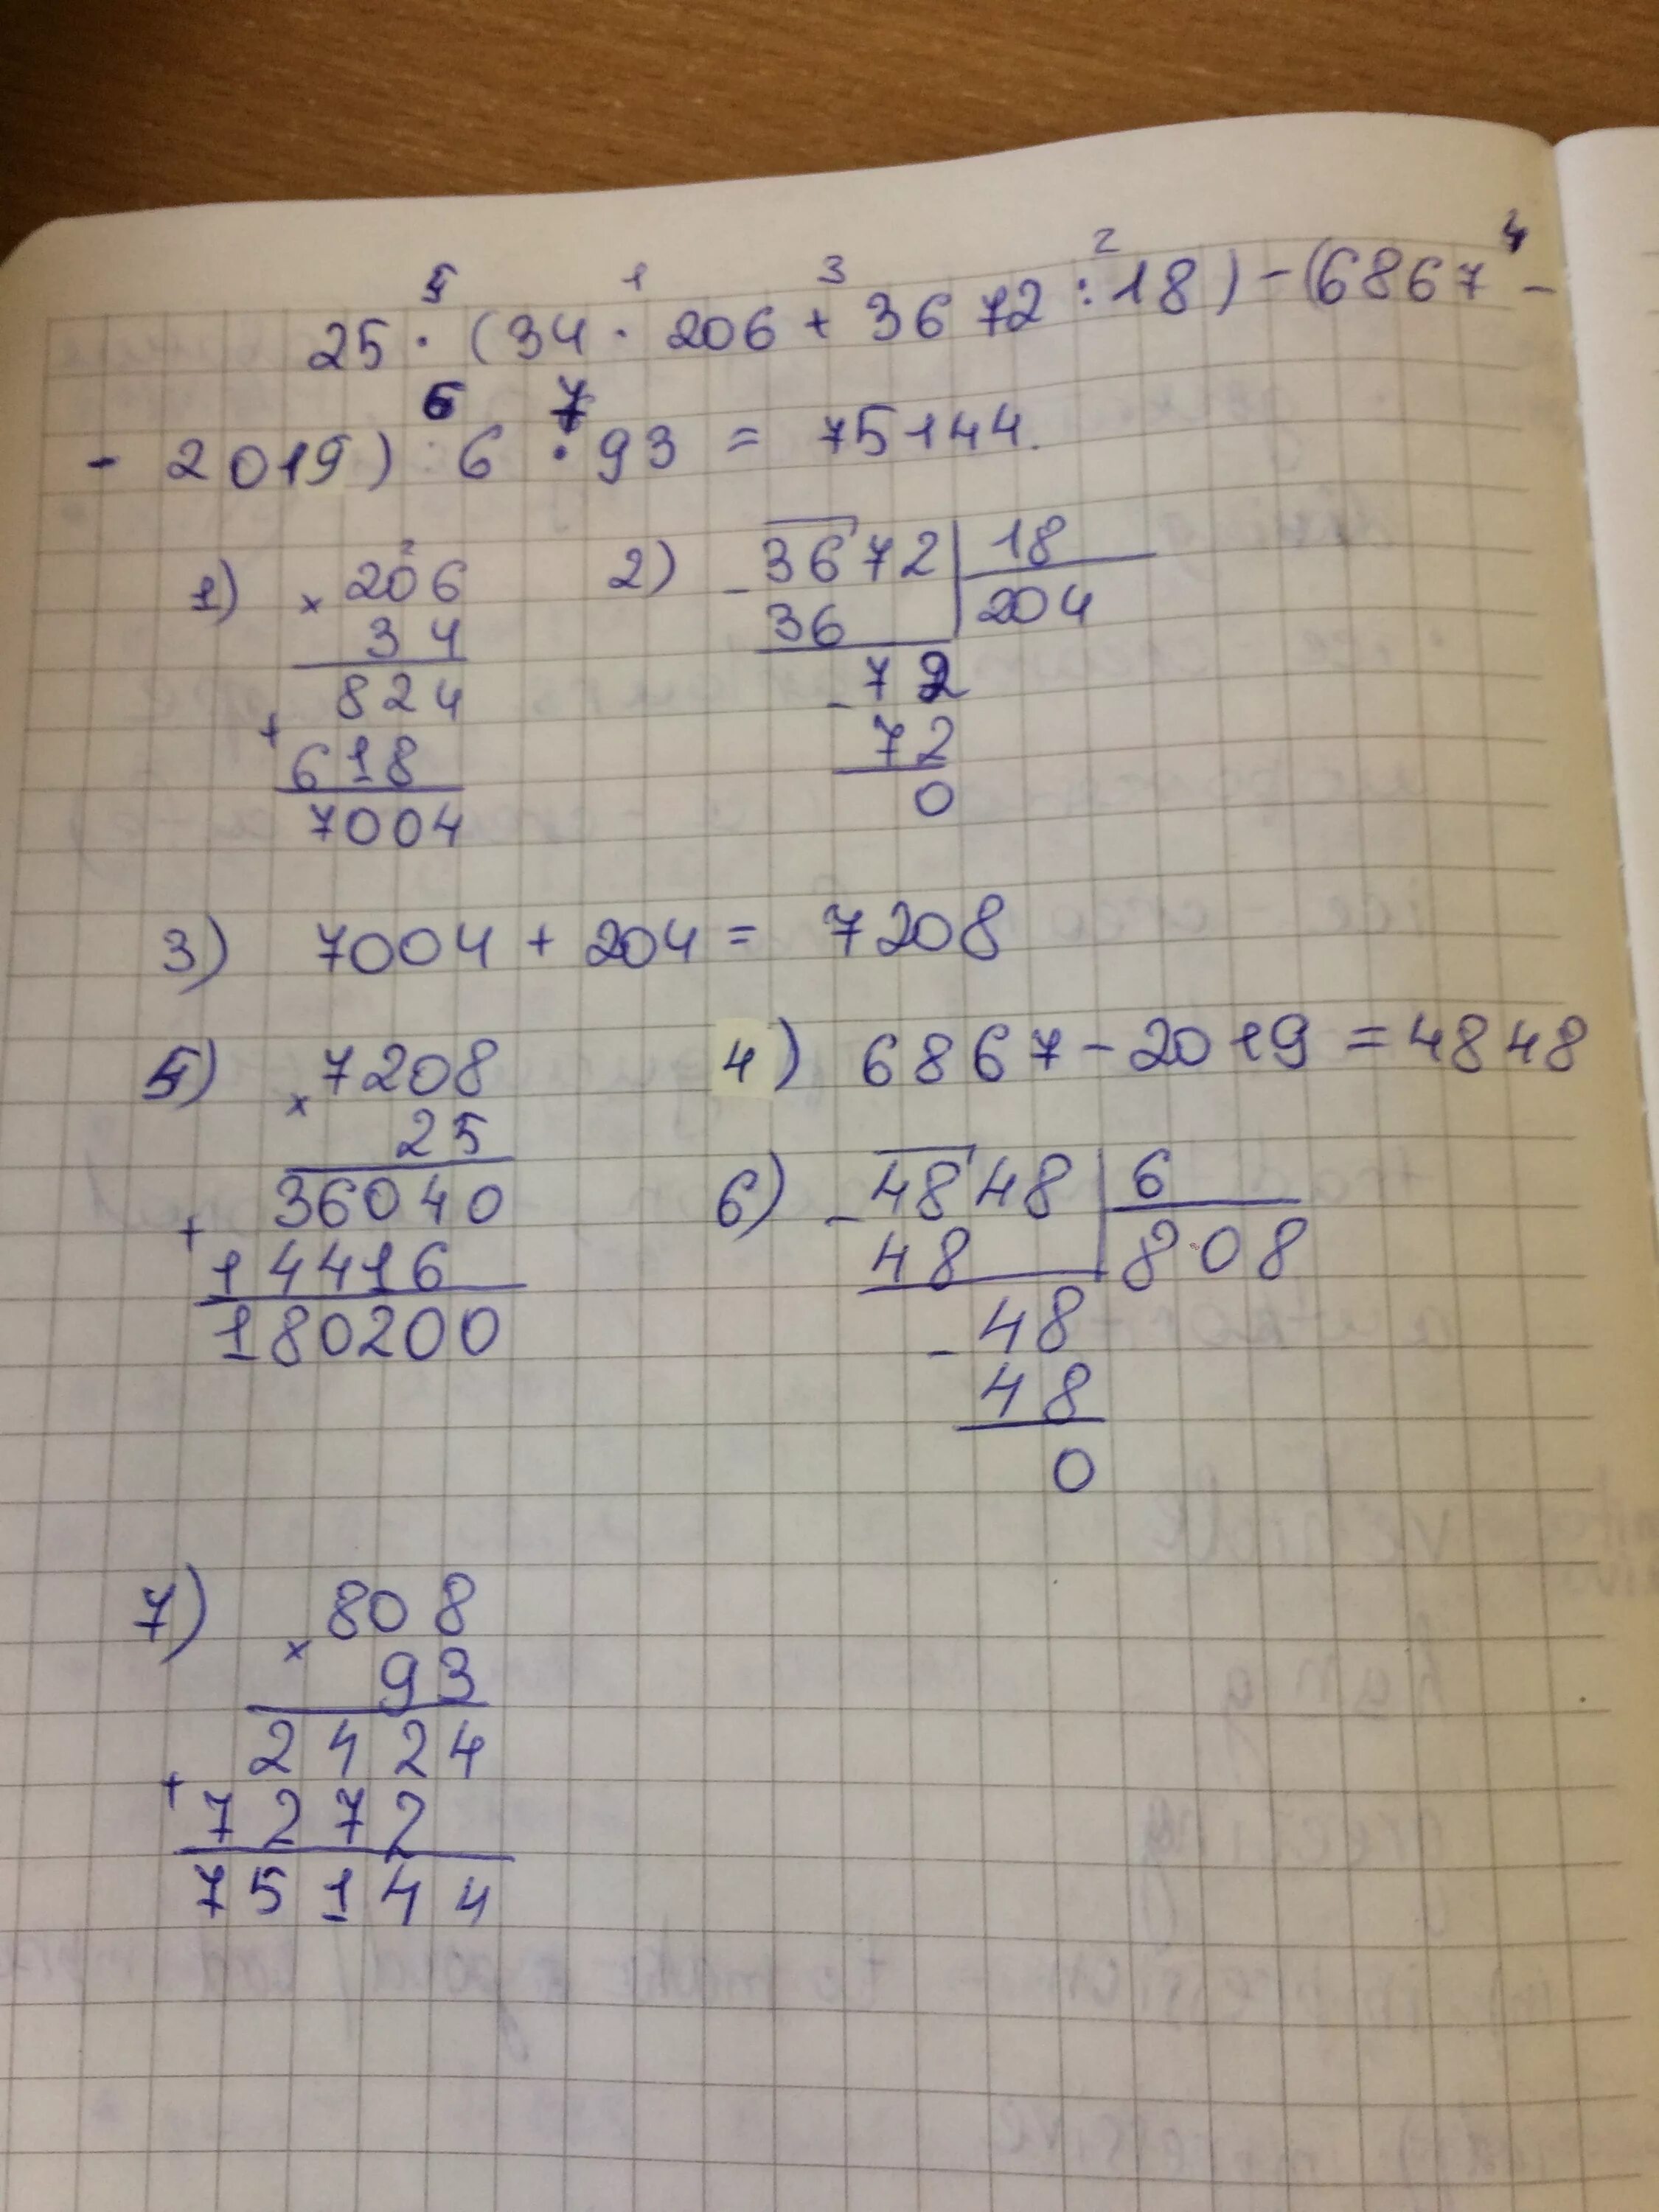 5 1 3 2 4
25 · (34 · 206 + 3672 : 18) - (6867 -
6 7
- 2019) : 6 · 93 = 75144.
1) × 206
2
34
824
+
618
7004
2) - 3672 | 18
36 204
- 72
72
0
3) 7004 + 204 = 7208
5) × 7208
25
36040
+
14416
180200
4) 6867 - 2019 = 4848
6) - 4848 | 6
48 808
- 48
48
0
7) × 808
93
2424
+
7272
75144